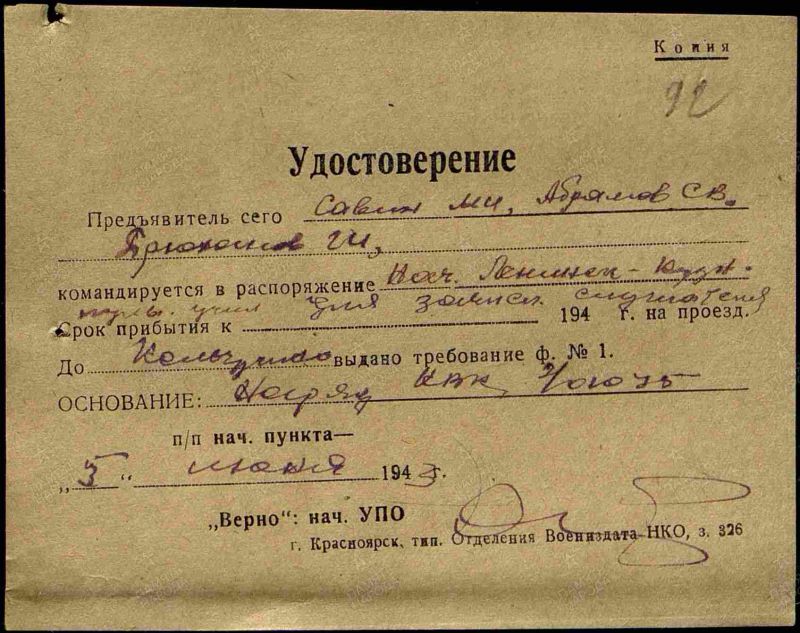 Копия
92
Удостоверение
Предъявитель сего Савин М.И, Абрамов С.В.
командируется в распоряжение Нач. Ленинск-Кузн.
пул. учил для зачисл.
Срок прибытия к 194 г. на проезд.
До Кольчугино выдано требование ф. № 1.
ОСНОВАНИЕ: Наряд
п/п нач. пункта—
„5" июня 1943
„Верно": нач. УПО
г. Красноярск, тип. Отделения Воениздата НКО, з. 326